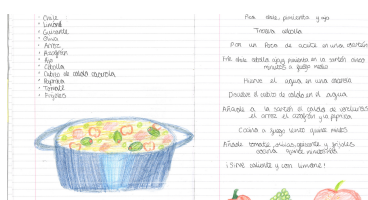 Limón
Guisante
Oliva
Arroz
Azafrán
Ajo
Cebolla
Cubito de caldo
Paprika
Tomate
Frijoles
Pica chile, pimiento y ajo
cebolla
Pon un poco de aceite en una sartén
Fríe chile cebolla ajo y pimiento en la sartén cinco
minutos a fuego medio
Hierve el agua en una
Disuelve el cubito de caldo en el agua
Añade a la sartén el caldo de verduras
el arroz el azafrán y la paprica
Cocina a fuego lento quince minutos
Añade tomate guisante y frijoles
cocina minutos más
¡Sirve caliente y con limone!